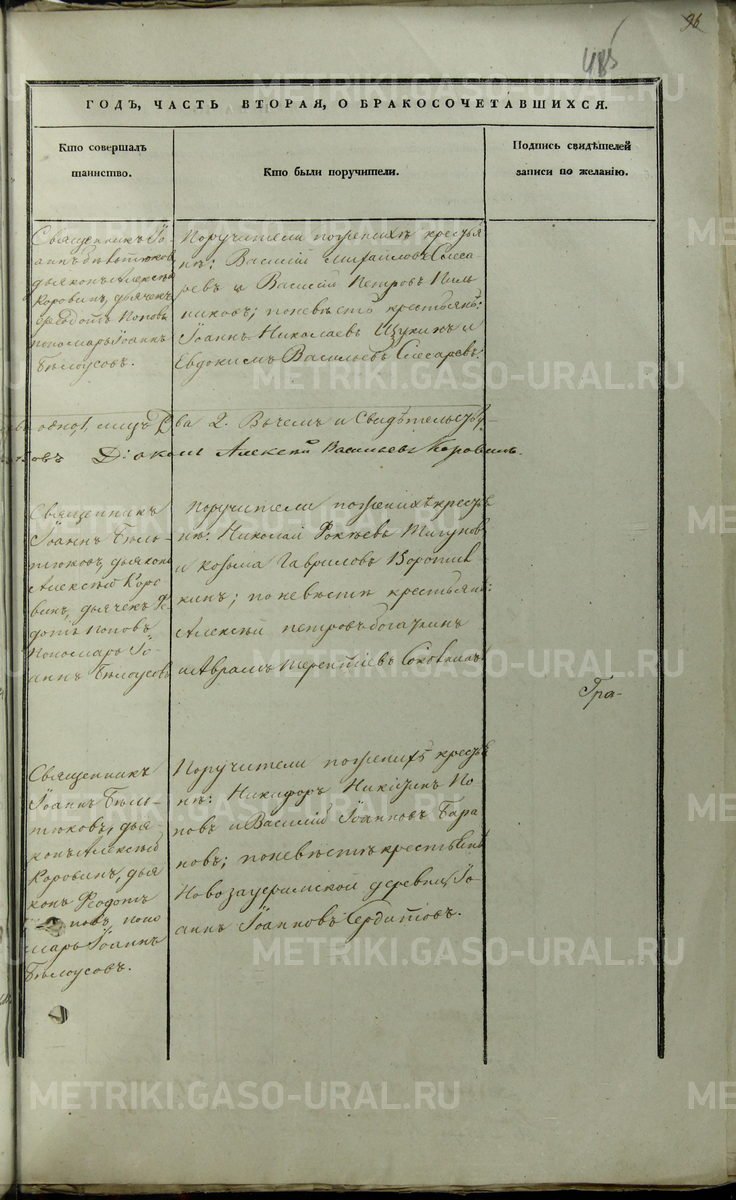 96
485
ГОДЪ, ЧАСТЬ ВТОРАЯ, О БРАКОСОЧЕТАВШИХСЯ.
Кто совершалъ
таинство.
Кто были поручители.
Подпись свидѣтелей
записи по желанію.
Священникъ Іо-
аннъ Бѣльтюковъ
дьяконъ Алексѣй
Коровинъ, дьячекъ
Ѳеодотъ Поповъ
пономарь Іоаннъ
Бѣлоусовъ.
Поручители по женихѣ крестья
нѣ: Василій Михаиловъ Слеса-
ревъ и Василій Петровъ Пиль
никовъ; по невѣстѣ крестьянѣ:
Іоаннъ Николаевъ Щукинъ и
Евдокимъ Васильевъ Слесаревъ.
два 2. В чемъ и Свидѣтельству-
Діаконъ Алексѣй Васильевъ Коровинъ.
Священникъ
Іоаннъ Бѣль-
тюковъ, дьяконъ
Алексѣй Коро-
винъ, дьячекъ Ѳе
дотъ Поповъ
Пономарь Іо-
аннъ Бѣлоусовъ
Поручители по женихѣ крестья
нѣ: Николай Фокѣевъ
и Козьма Гавриловъ Воротни
кинъ; по невѣстѣ крестьянѣ:
Алексѣй Петровъ Богаткинъ
и Аврамъ Терентіевъ
Гра-
Священникъ
Іоаннъ Бѣль-
тюковъ, дья-
конъ Алексѣй
Коровинъ, дья
конъ Ѳеодотъ
повъ поно
марь Іоаннъ
Бѣлоусовъ.
Поручители по женихѣ крестья
нѣ: Никифоръ Никитинъ По
повъ и Василій Іоанновъ Бара
новъ; по невѣстѣ крестьянинъ
деревни Іо-
аннъ Іоанновъ Сердитовъ.
METRIKI.GASO-URAL.RU